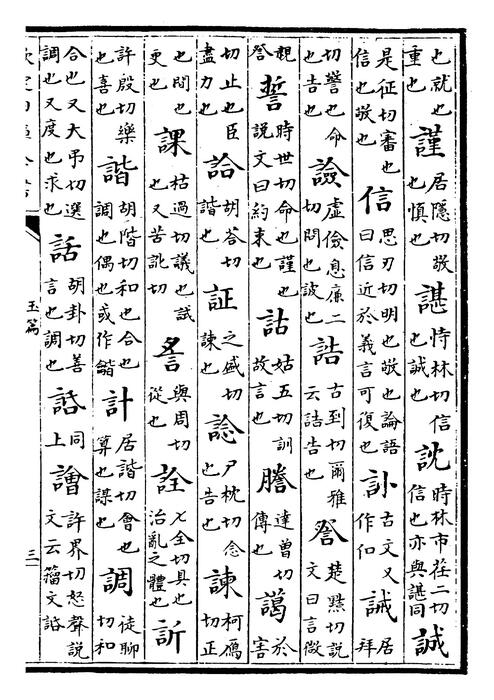 也就也重也謹居隱切敬也慎也諶恃林切信也誠也訦時林市荏二切信也亦與諶同誠
是征切審也信也敬也信思刃切明也敬也論語曰信近於義言可復也古文又作㐰誡居拜
切警也命也告也譣虛儉息廉二切問也詖也誥古到切爾雅云誥告也詧楚黠切說文曰言微
親詧誓時世切命也謹也說文曰約束也詁姑五切訓故言也謄達曾切傳也藹於害
切止也臣盡力也詥胡荅切諧也証之盛切諫也諗尸枕切念也告也諫柯鴈切正
也問也更也課枯過切議也試也又苦訛切䚻與周切從也詮七全切具也治亂之體也訢
許殷切樂也喜也諧胡階切和也合也調也偶也或作龤計居詣切會也算也謀也調徒聊切和
合也又大弔切選調也又度也求也話胡卦切善言也調也同上譮許界切怒聲說文云籀文
玉篇
三